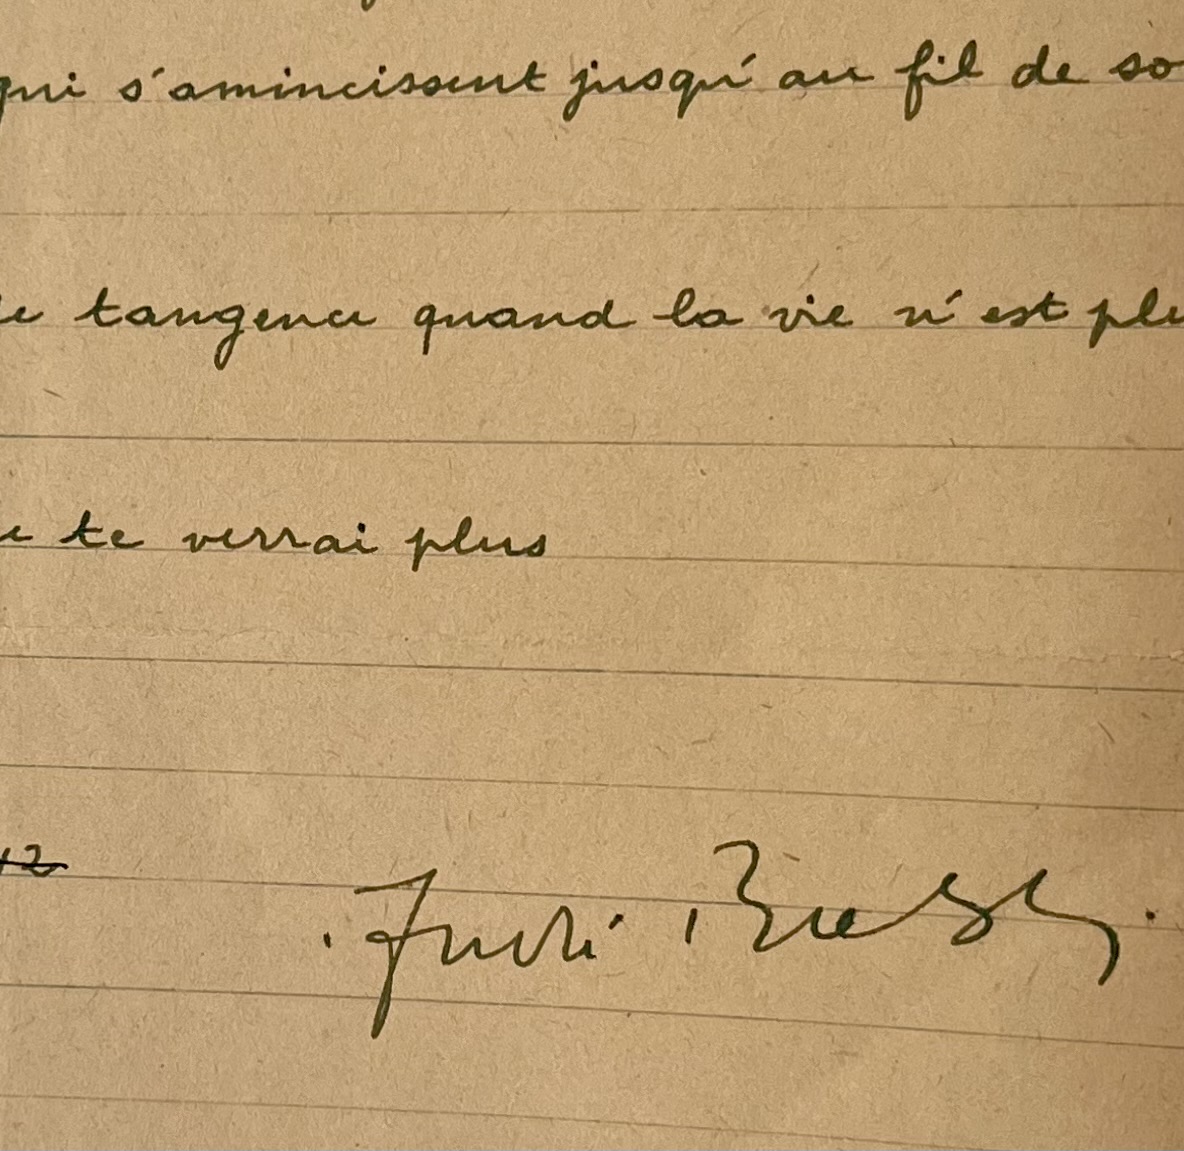 qui s'amincissent jusqu'au fil de so
de tangence quand la vie n'est plu
te verrai plus
12
André Breton